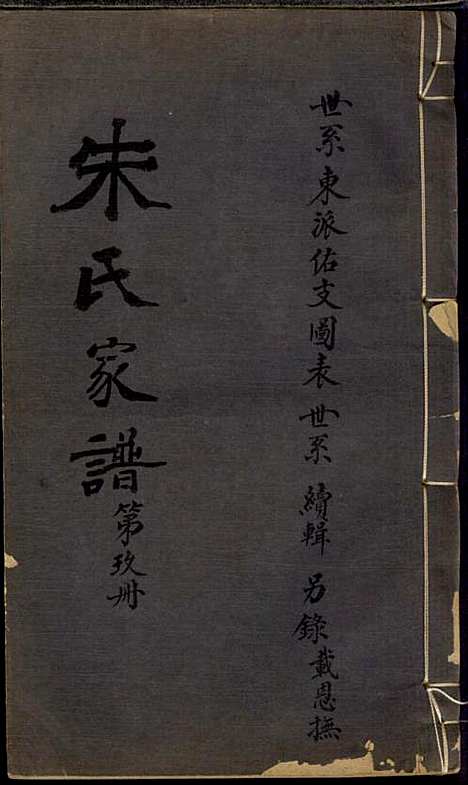 世系東派佑支圖表世系 續輯 另錄載恩撫
朱氏家譜
第玖册